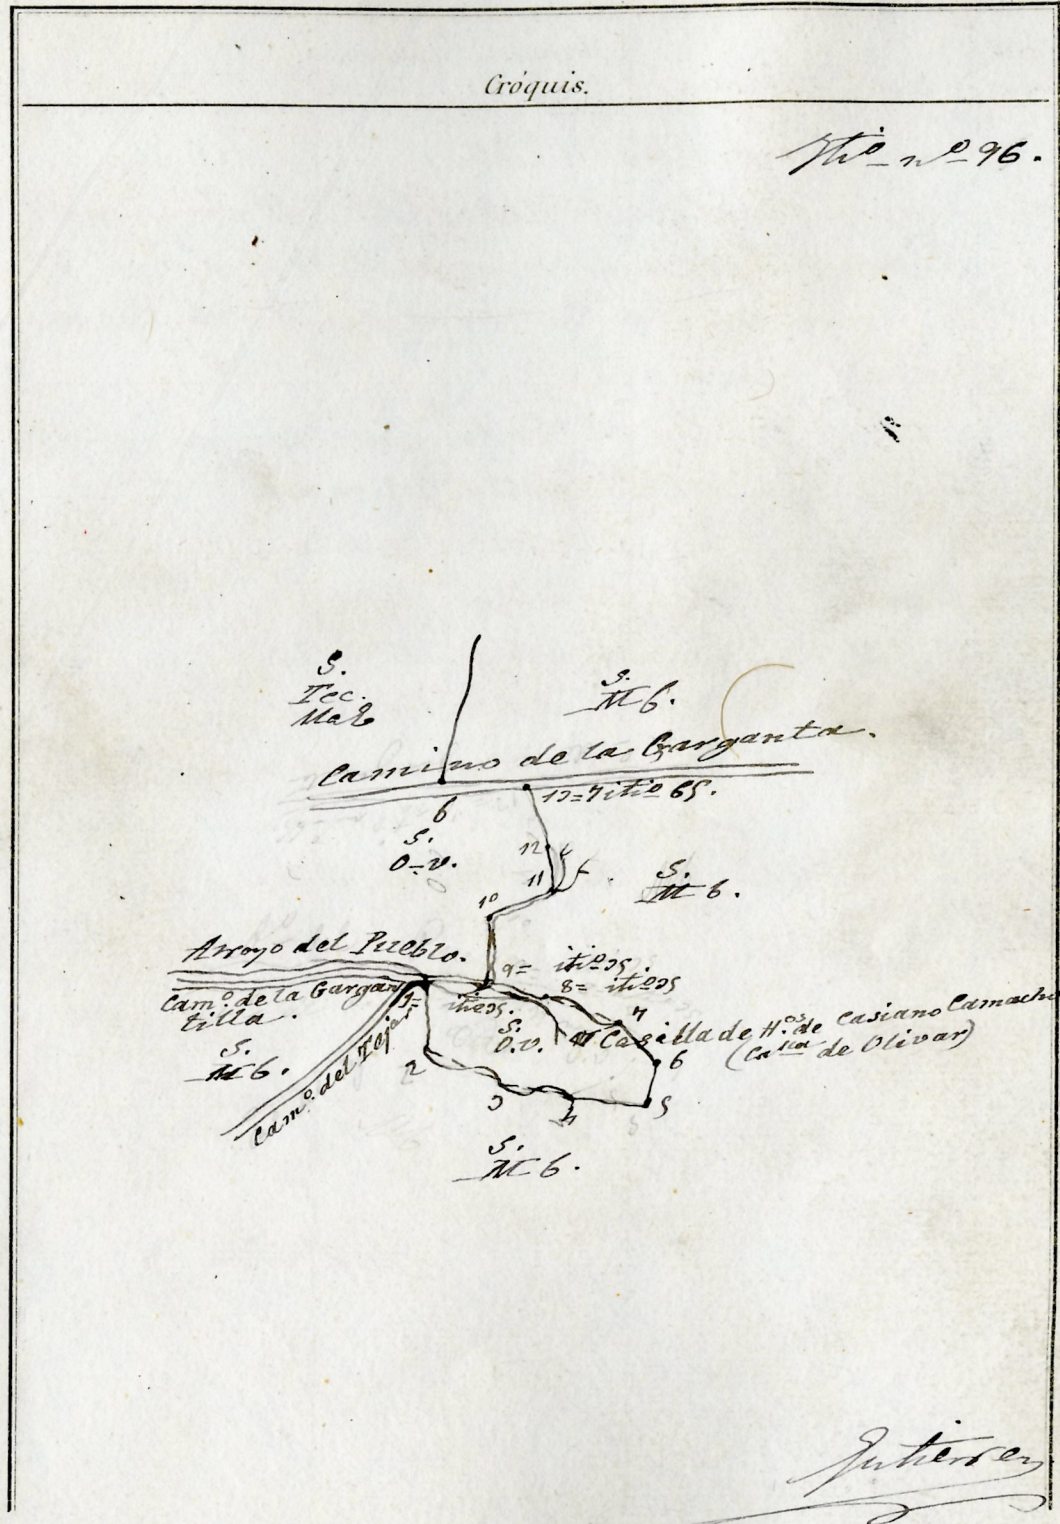 Cróquis.
Itiº nº 96.
S.
Tec.
Mat
S.
M b.
Camino de la Garganta.
13=7 itiº 65.
6
S.
O-v.
12
11
S.
M b.
10
Arroyo del Pueblo.
9= itiº 35.
8= itiº 35
Camº. de la Gargan
tilla.
1=
itiº 35.
7
S.
O.v.
Casilla de H.os de Casiano Camacho
(Ca de Olivar)
S.
M b.
Camº. del Tejar
2
6
3
4
5
S.
M b.
Gutierrez